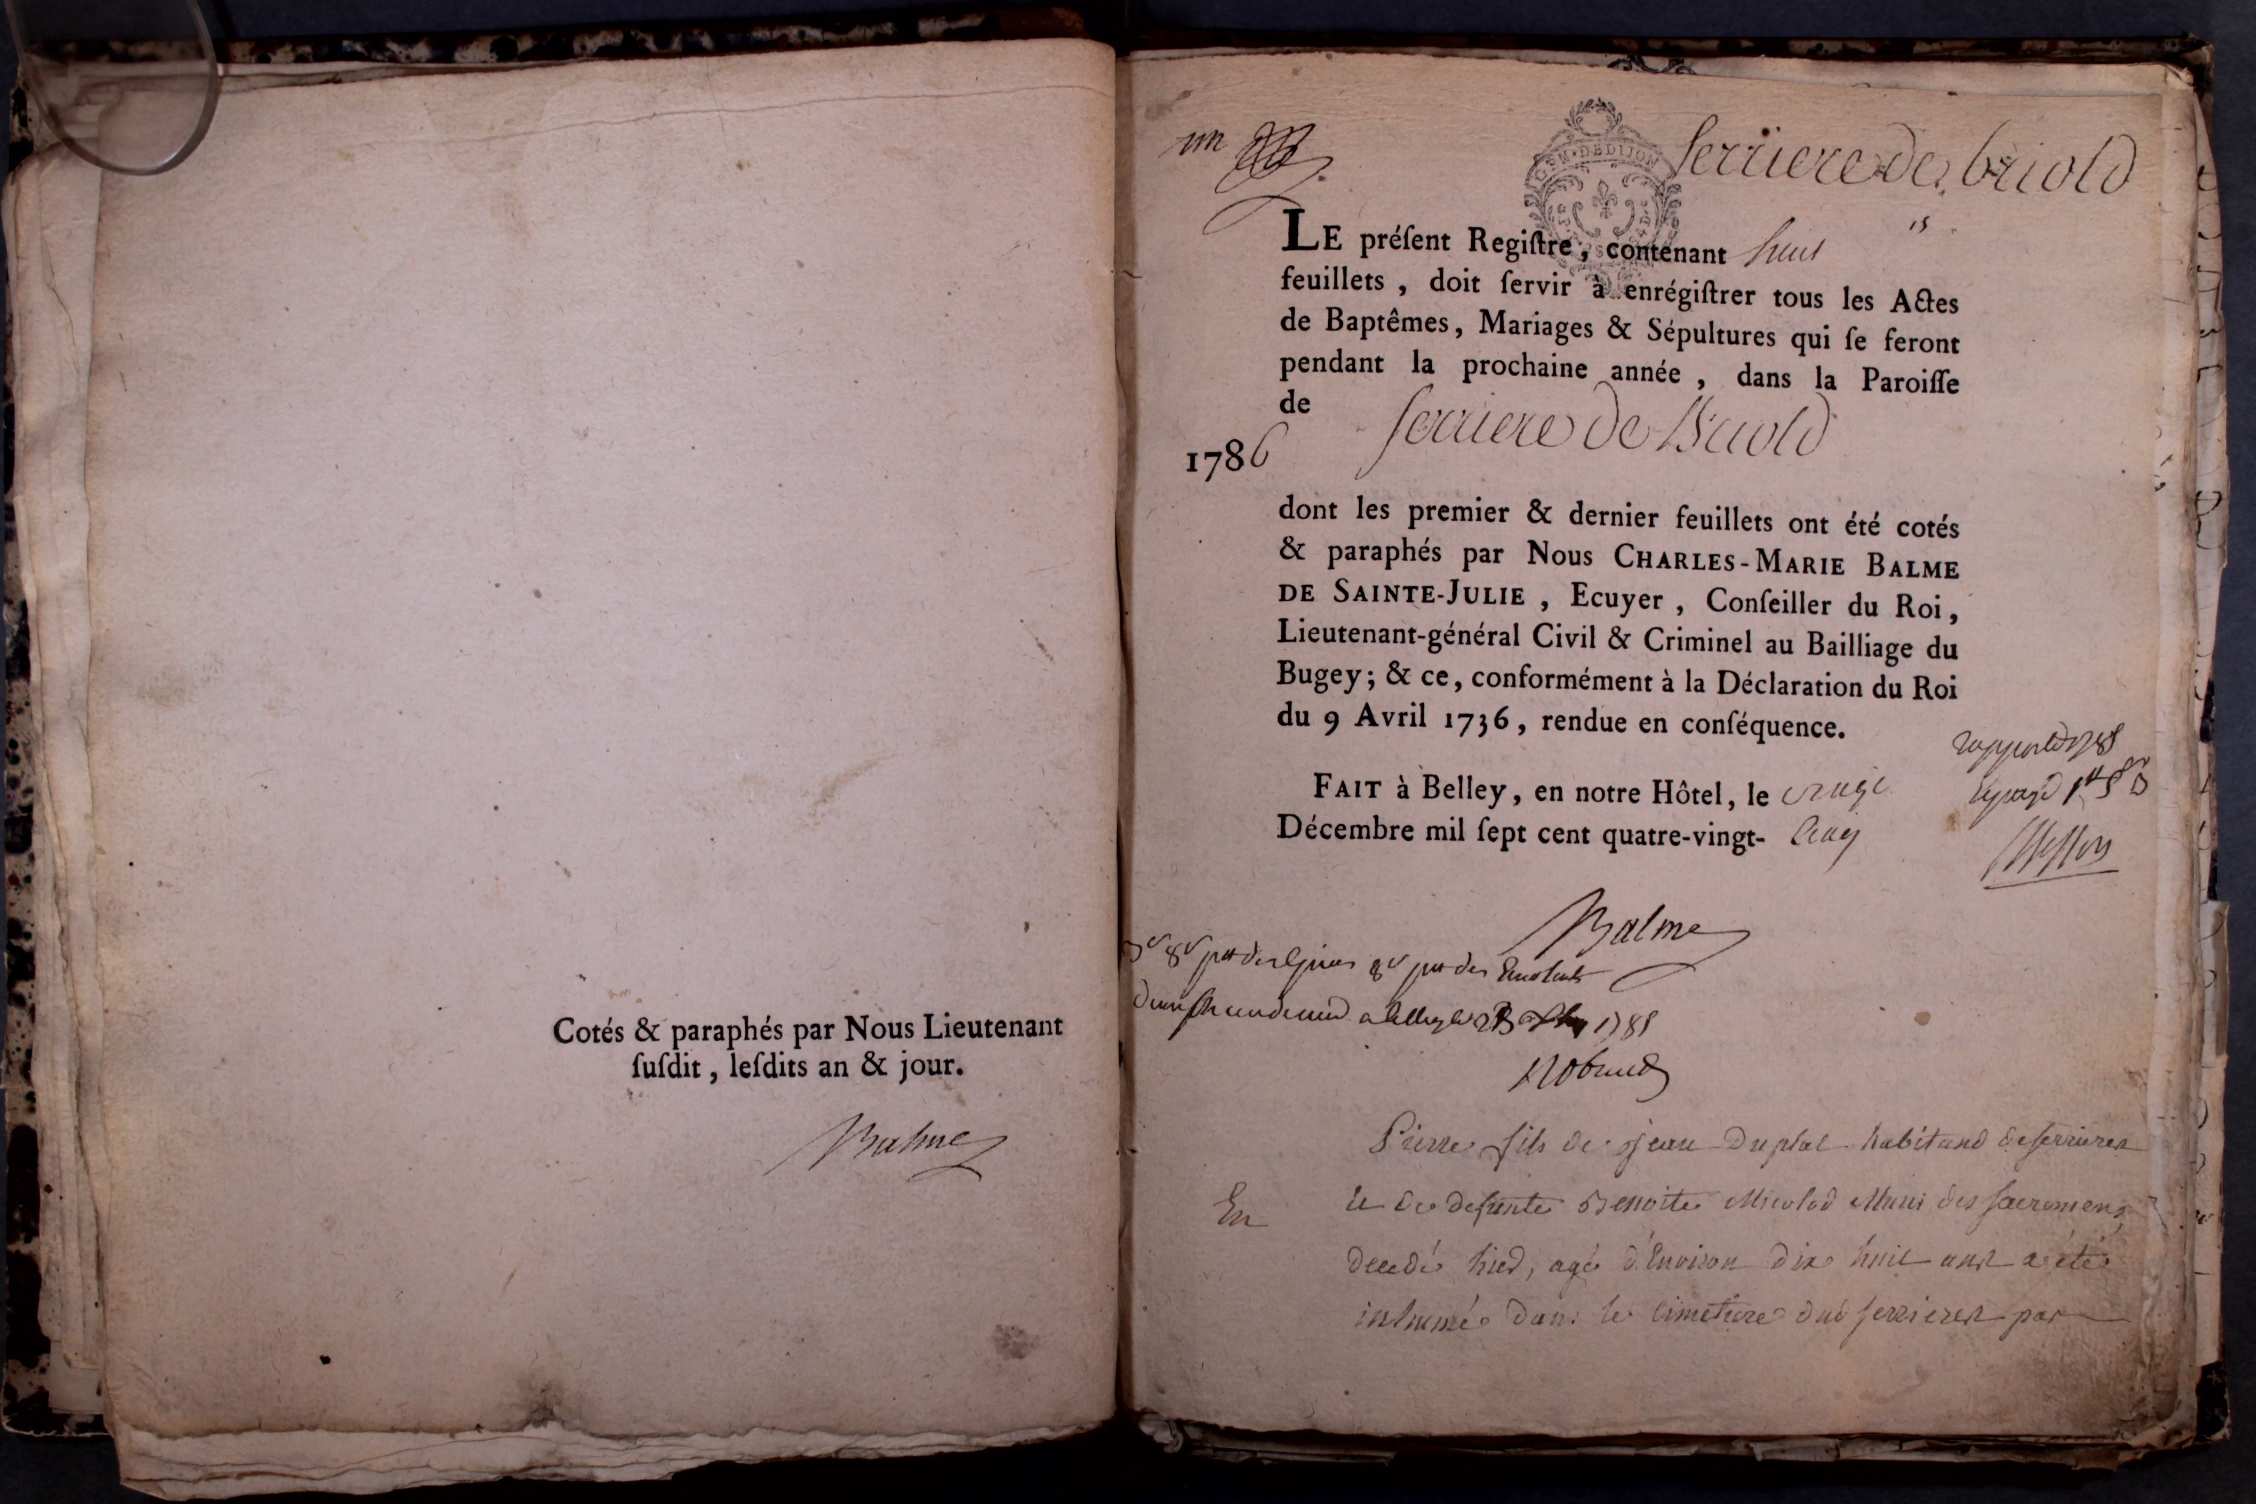 Cotés & paraphés par Nous Lieutenant
ſuſdit, leſdits an & jour.
Balme
un
GEN DE DIJON
Serriere de briold
LE préſent Regiſtre, contenant huit
feuillets, doit ſervir à enrégiſtrer tous les Actes
de Baptêmes, Mariages & Sépultures qui ſe feront
pendant la prochaine année, dans la Paroiſſe
de Serriere de Briold
1786
dont les premier & dernier feuillets ont été cotés
& paraphés par Nous CHARLES-MARIE BALME
DE SAINTE-JULIE, Ecuyer, Conſeiller du Roi,
Lieutenant-général Civil & Criminel au Bailliage du
Bugey; & ce, conformément à la Déclaration du Roi
du 9 Avril 1736, rendue en conſéquence.
FAIT à Belley, en notre Hôtel, le
Décembre mil ſept cent quatre-vingt- Cinq
Balme
1785
Pierre fils de jean Duplat habitand de serrieres
Et De Defunte Benoite Micolod Muni des sacremens
Decedé hier, agé d'Environ Dix huit ans a été
En
inhumé Dans le Cimetiere dud serrieres par